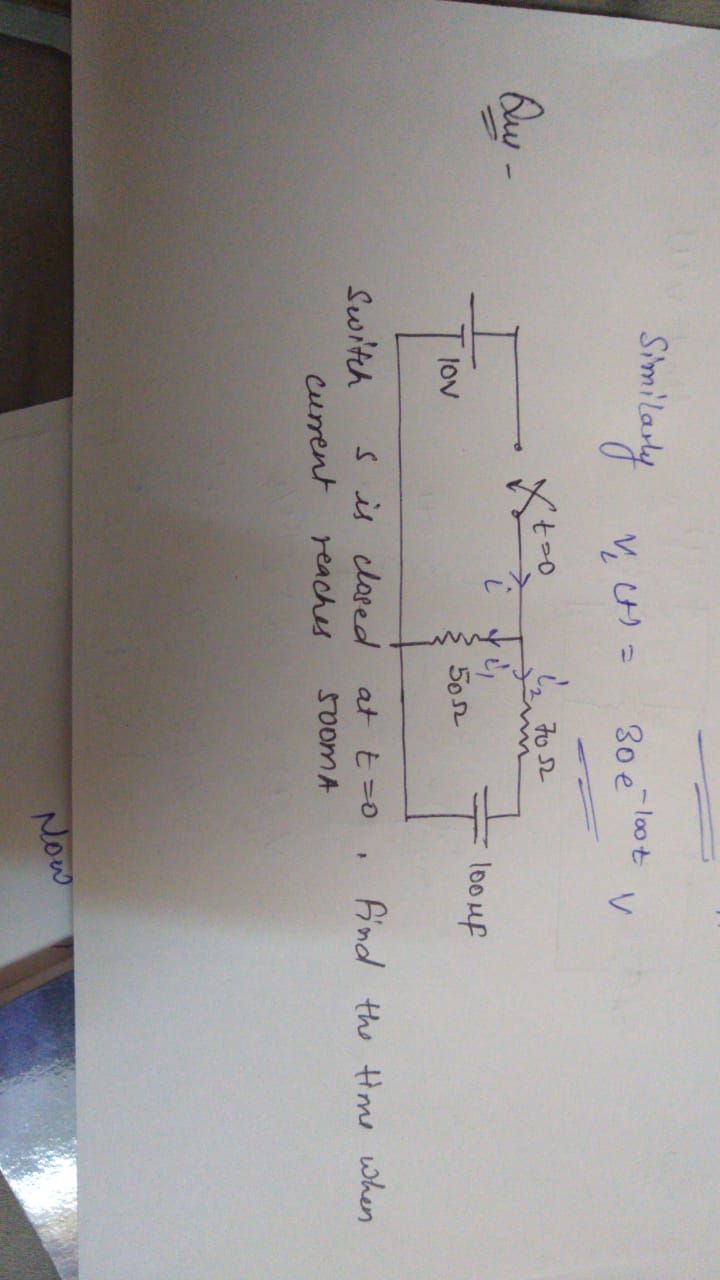 Similarly V_L(t) = 30e^-100t V
Que -
t=0
i
i₂
70Ω
i₁
10V
50Ω
100μf
Switch S is closed at t=0, find the time when
current reaches 500mA
Now